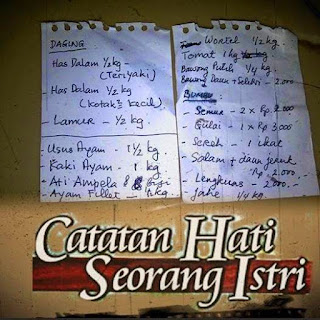 DAGING
Has Dalam 1/2 kg -
(Teriyaki)
Has Dalam 1/2 kg
(kotak² kecil)
Lamur - 1/2 kg
Usus Ayam - 1 1/2 kg
Kaki Ayam - 1 kg
Ati Ampela 8 biji
Ayam Fillet - 1 kg
Wortel 1/2 kg -
Tomat 1 kg
Bawang Putih 1/4 kg -
Bawang Daun + Seledri - 2.000
Bumbu
- Semur - 2 x Rp.
- Gulai - 1 x Rp.
- Sereh - 1 ikat
- Salam + daun jeruk
Rp 2.000
- Lengkuas - 2.000.-
- Jahe 1/4 kg
Catatan Hati
Seorang Istri